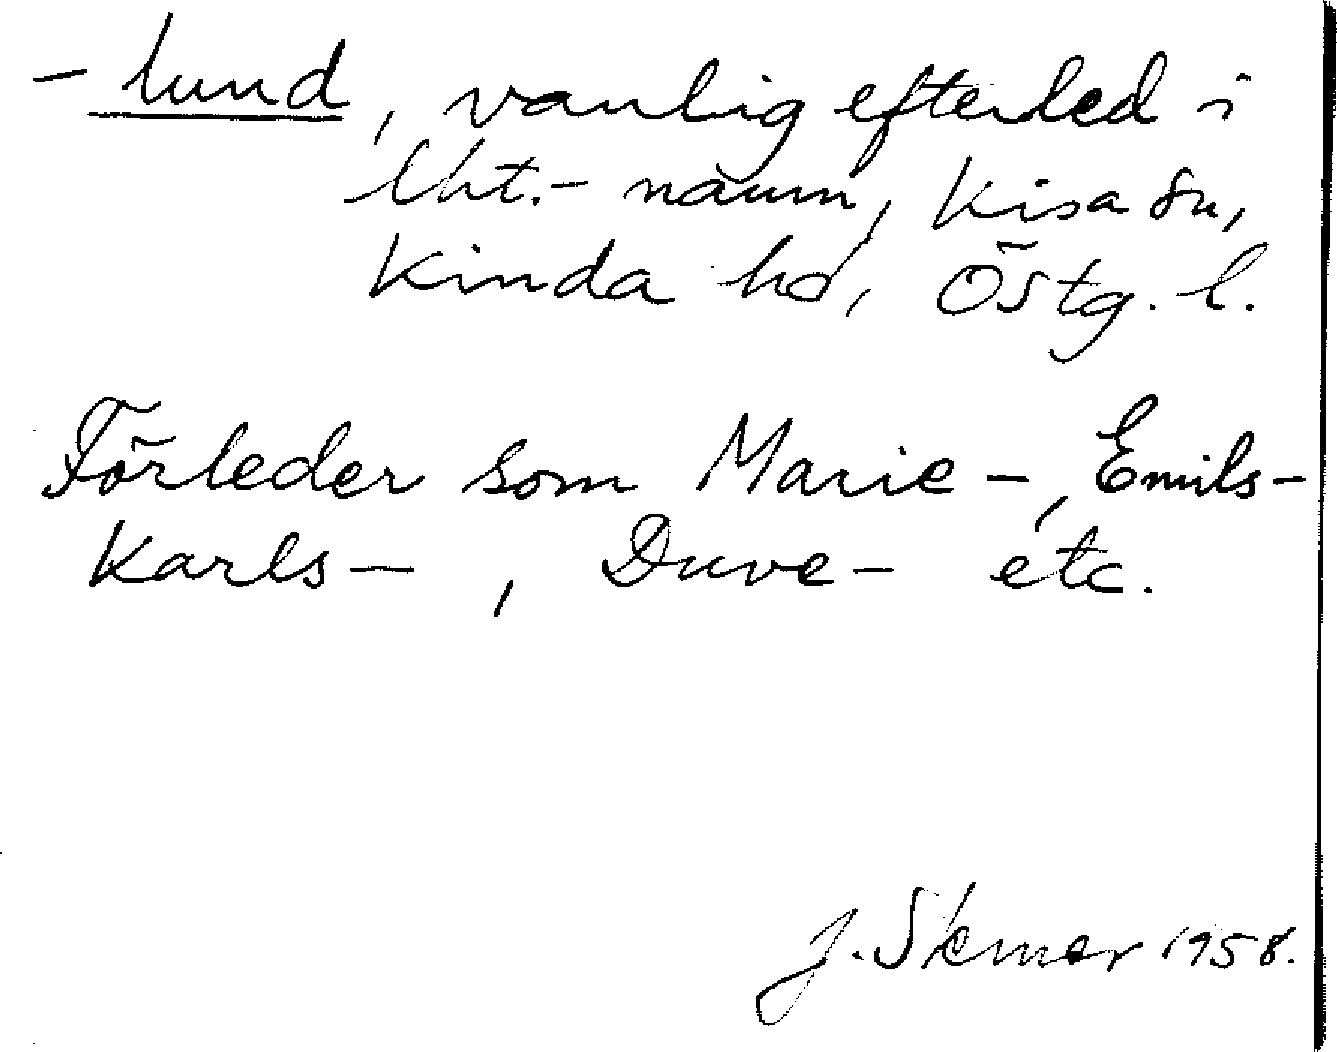 -lund, vanlig efterled i
lht.-namn, Kisa sn,
Kinda hd, Östg. l.
Förleder som Marie-, Emils-
Karls-, Duve- etc.
J. 1958.